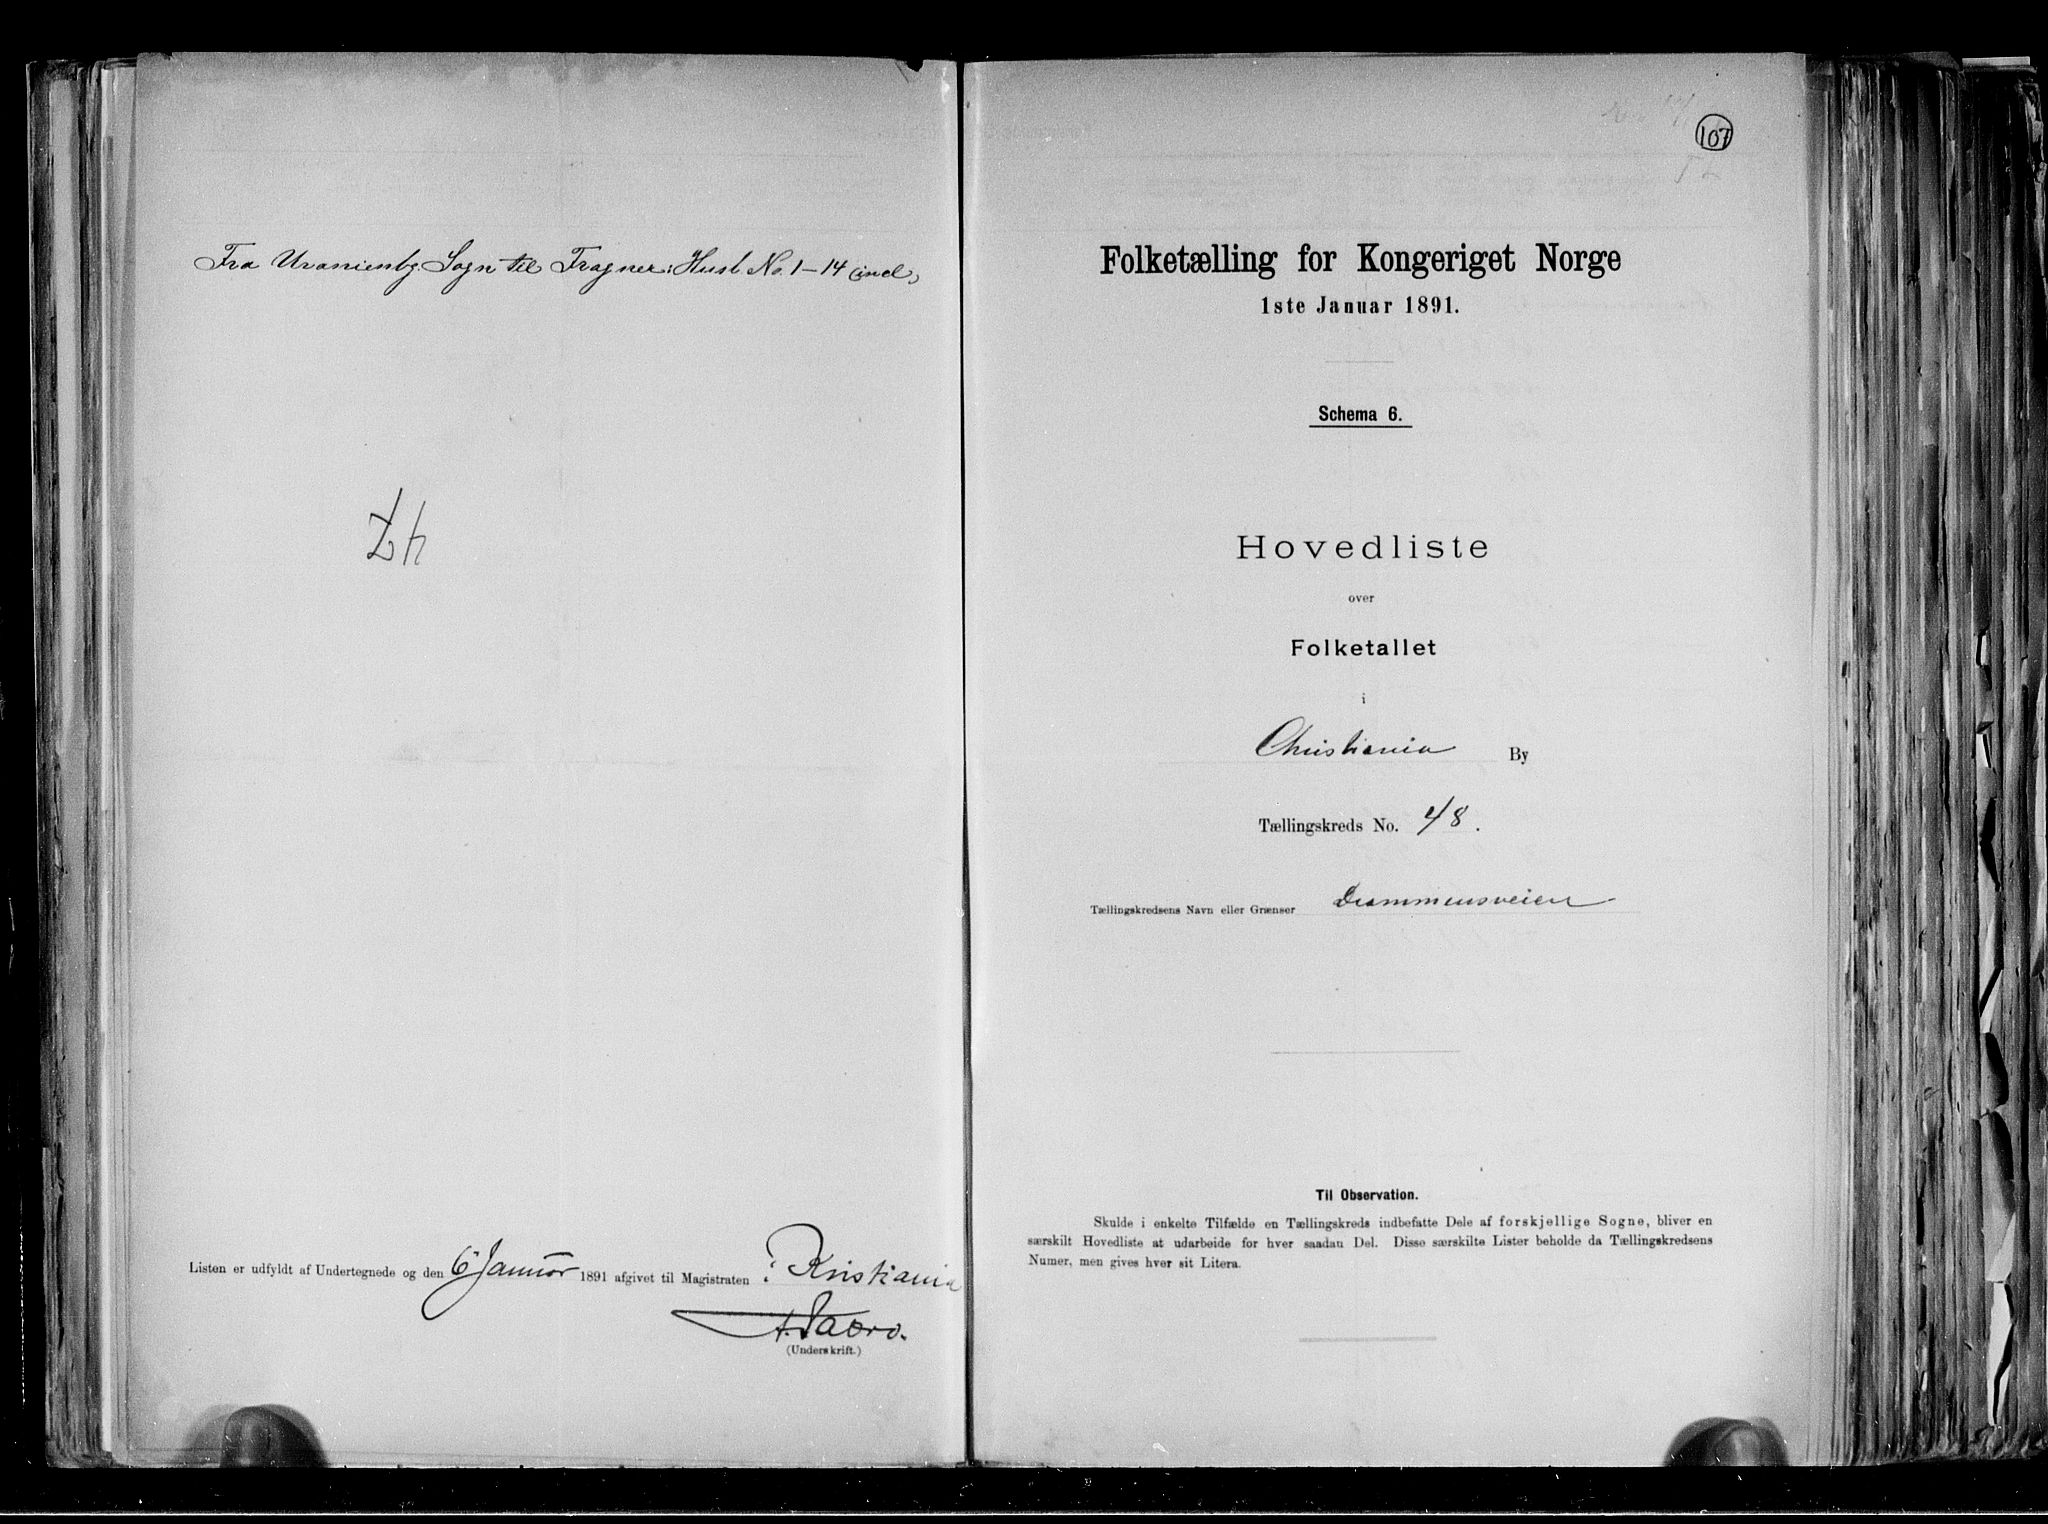 Fra Uranienbg. Sogn til Frogner: Husl. No. 1-14 incl,
47
Listen er udfyldt af Undertegnede og den 6 Januar 1891 afgivet til Magistraten i Kristiania
(Underskrift.)
107
Folketælling for Kongeriget Norge
1ste Januar 1891.
Schema 6.
Hovedliste
over
Folketallet
i
Christiania By
Tællingskreds No. 48.
Tællingskredsens Navn eller Grænser Drammensveien
Til Observation.
Skulde i enkelte Tilfælde en Tællingskreds indbefatte Dele af forskjellige Sogne, bliver en
særskilt Hovedliste at udarbeide for hver saadan Del. Disse særskilte Lister beholde da Tællingskredsens
Numer, men gives hver sit Litera.